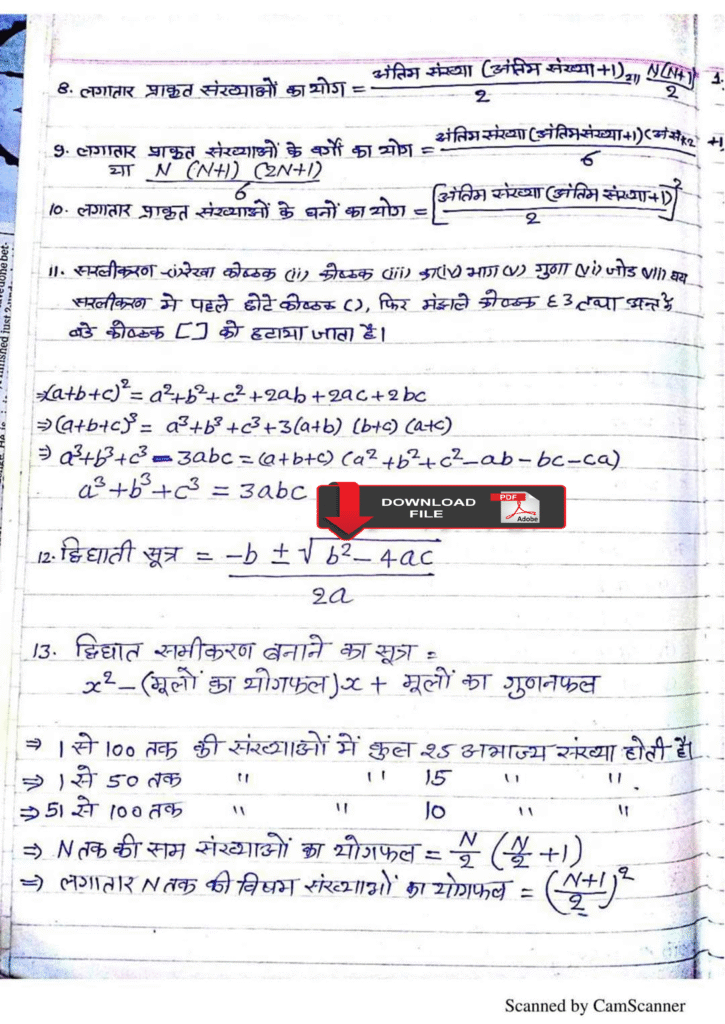 8. लगातार प्राकृत संख्याओं का योग = अंतिम संख्या (अंतिम संख्या+1) / 2 या N(N+1) / 2
1.
9. लगातार प्राकृत संख्याओं के वर्गों का योग = अंतिम संख्या (अंतिम संख्या+1) / 6
+1
या N (N+1) (2N+1) / 6
10. लगातार प्राकृत संख्याओं के घनों का योग = [अंतिम संख्या (अंतिम संख्या+1) / 2]²
11. सरलीकरण -(i) रेखा कोष्ठक (ii) कोष्ठक (iii) का (iv) भाग (v) गुणा (vi) जोड (vii)
सरलीकरण मे पहले छोटे कोष्ठक ( ), फिर मंझले कोष्ठक { } तथा अन्त में
बडे कोष्ठक [ ] को हटाया जाता है।
⇒(a+b+c)² = a²+b²+c²+2ab+2ac+2bc
⇒(a+b+c)³ = a³+b³+c³+3(a+b) (b+c) (a+c)
⇒ a³+b³+c³-3abc = (a+b+c) (a²+b²+c²-ab-bc-ca)
a³+b³+c³ = 3abc
DOWNLOAD
FILE
PDF
Adobe
12. द्विघाती सूत्र = -b ± √b²-4ac / 2a
13. द्विघात समीकरण बनाने का सूत्र =
x² - (मूलों का योगफल)x + मूलों का गुणनफल
⇒ 1 से 100 तक की संख्याओं में कुल 25 अभाज्य संख्या होती है।
⇒ 1 से 50 तक " " 15 " "
⇒ 51 से 100 तक " " 10 " "
⇒ N तक की सम संख्याओं का योगफल = N/2 (N/2 +1)
⇒ लगातार N तक की विषम संख्याओं का योगफल = (N+1 / 2)²
Scanned by CamScanner